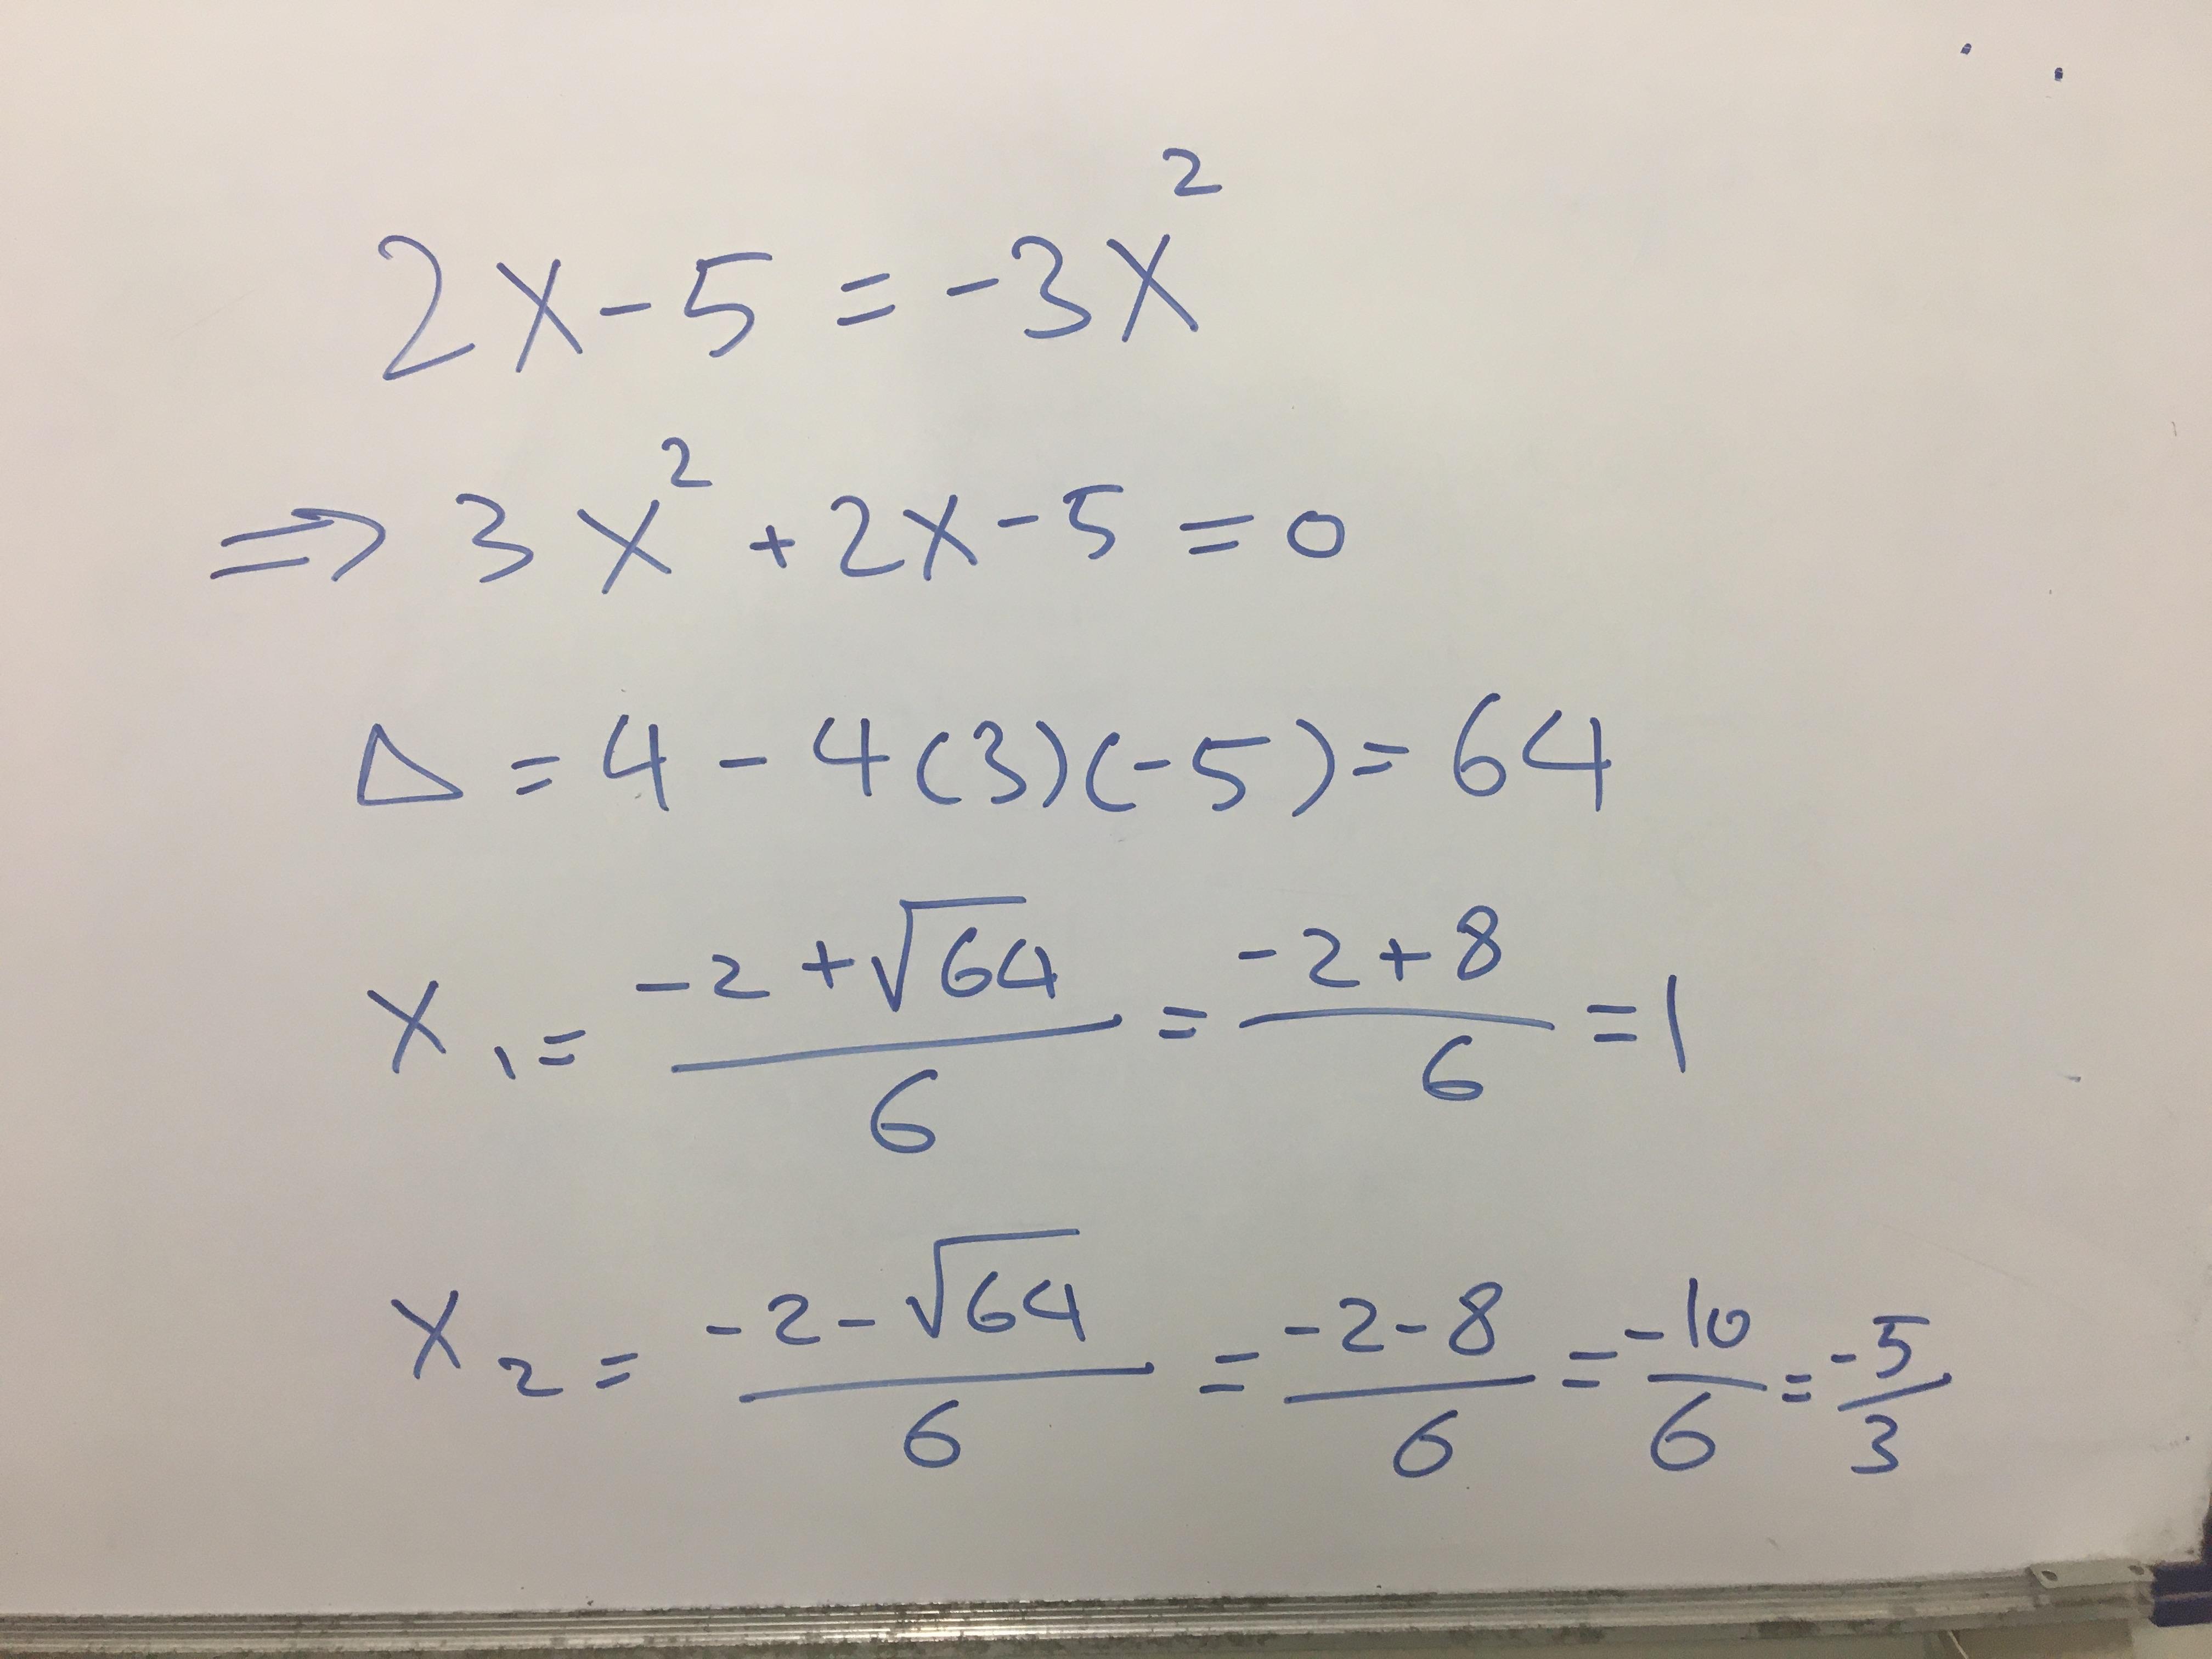 2x-5=-3x²
⇒ 3x²+2x-5=0
Δ=4-4(3)(-5)=64
x₁=(-2+√64)/6=(-2+8)/6=1
x₂=(-2-√64)/6=(-2-8)/6=-10/6=-5/3